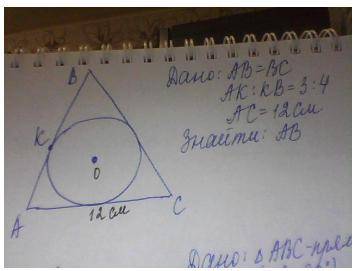 B
Дано: AB = BC
AK : KB = 3 : 4
AC = 12 см
Знайти: AB
K
O
A
12 см
C
Дано: Δ ABC - прям